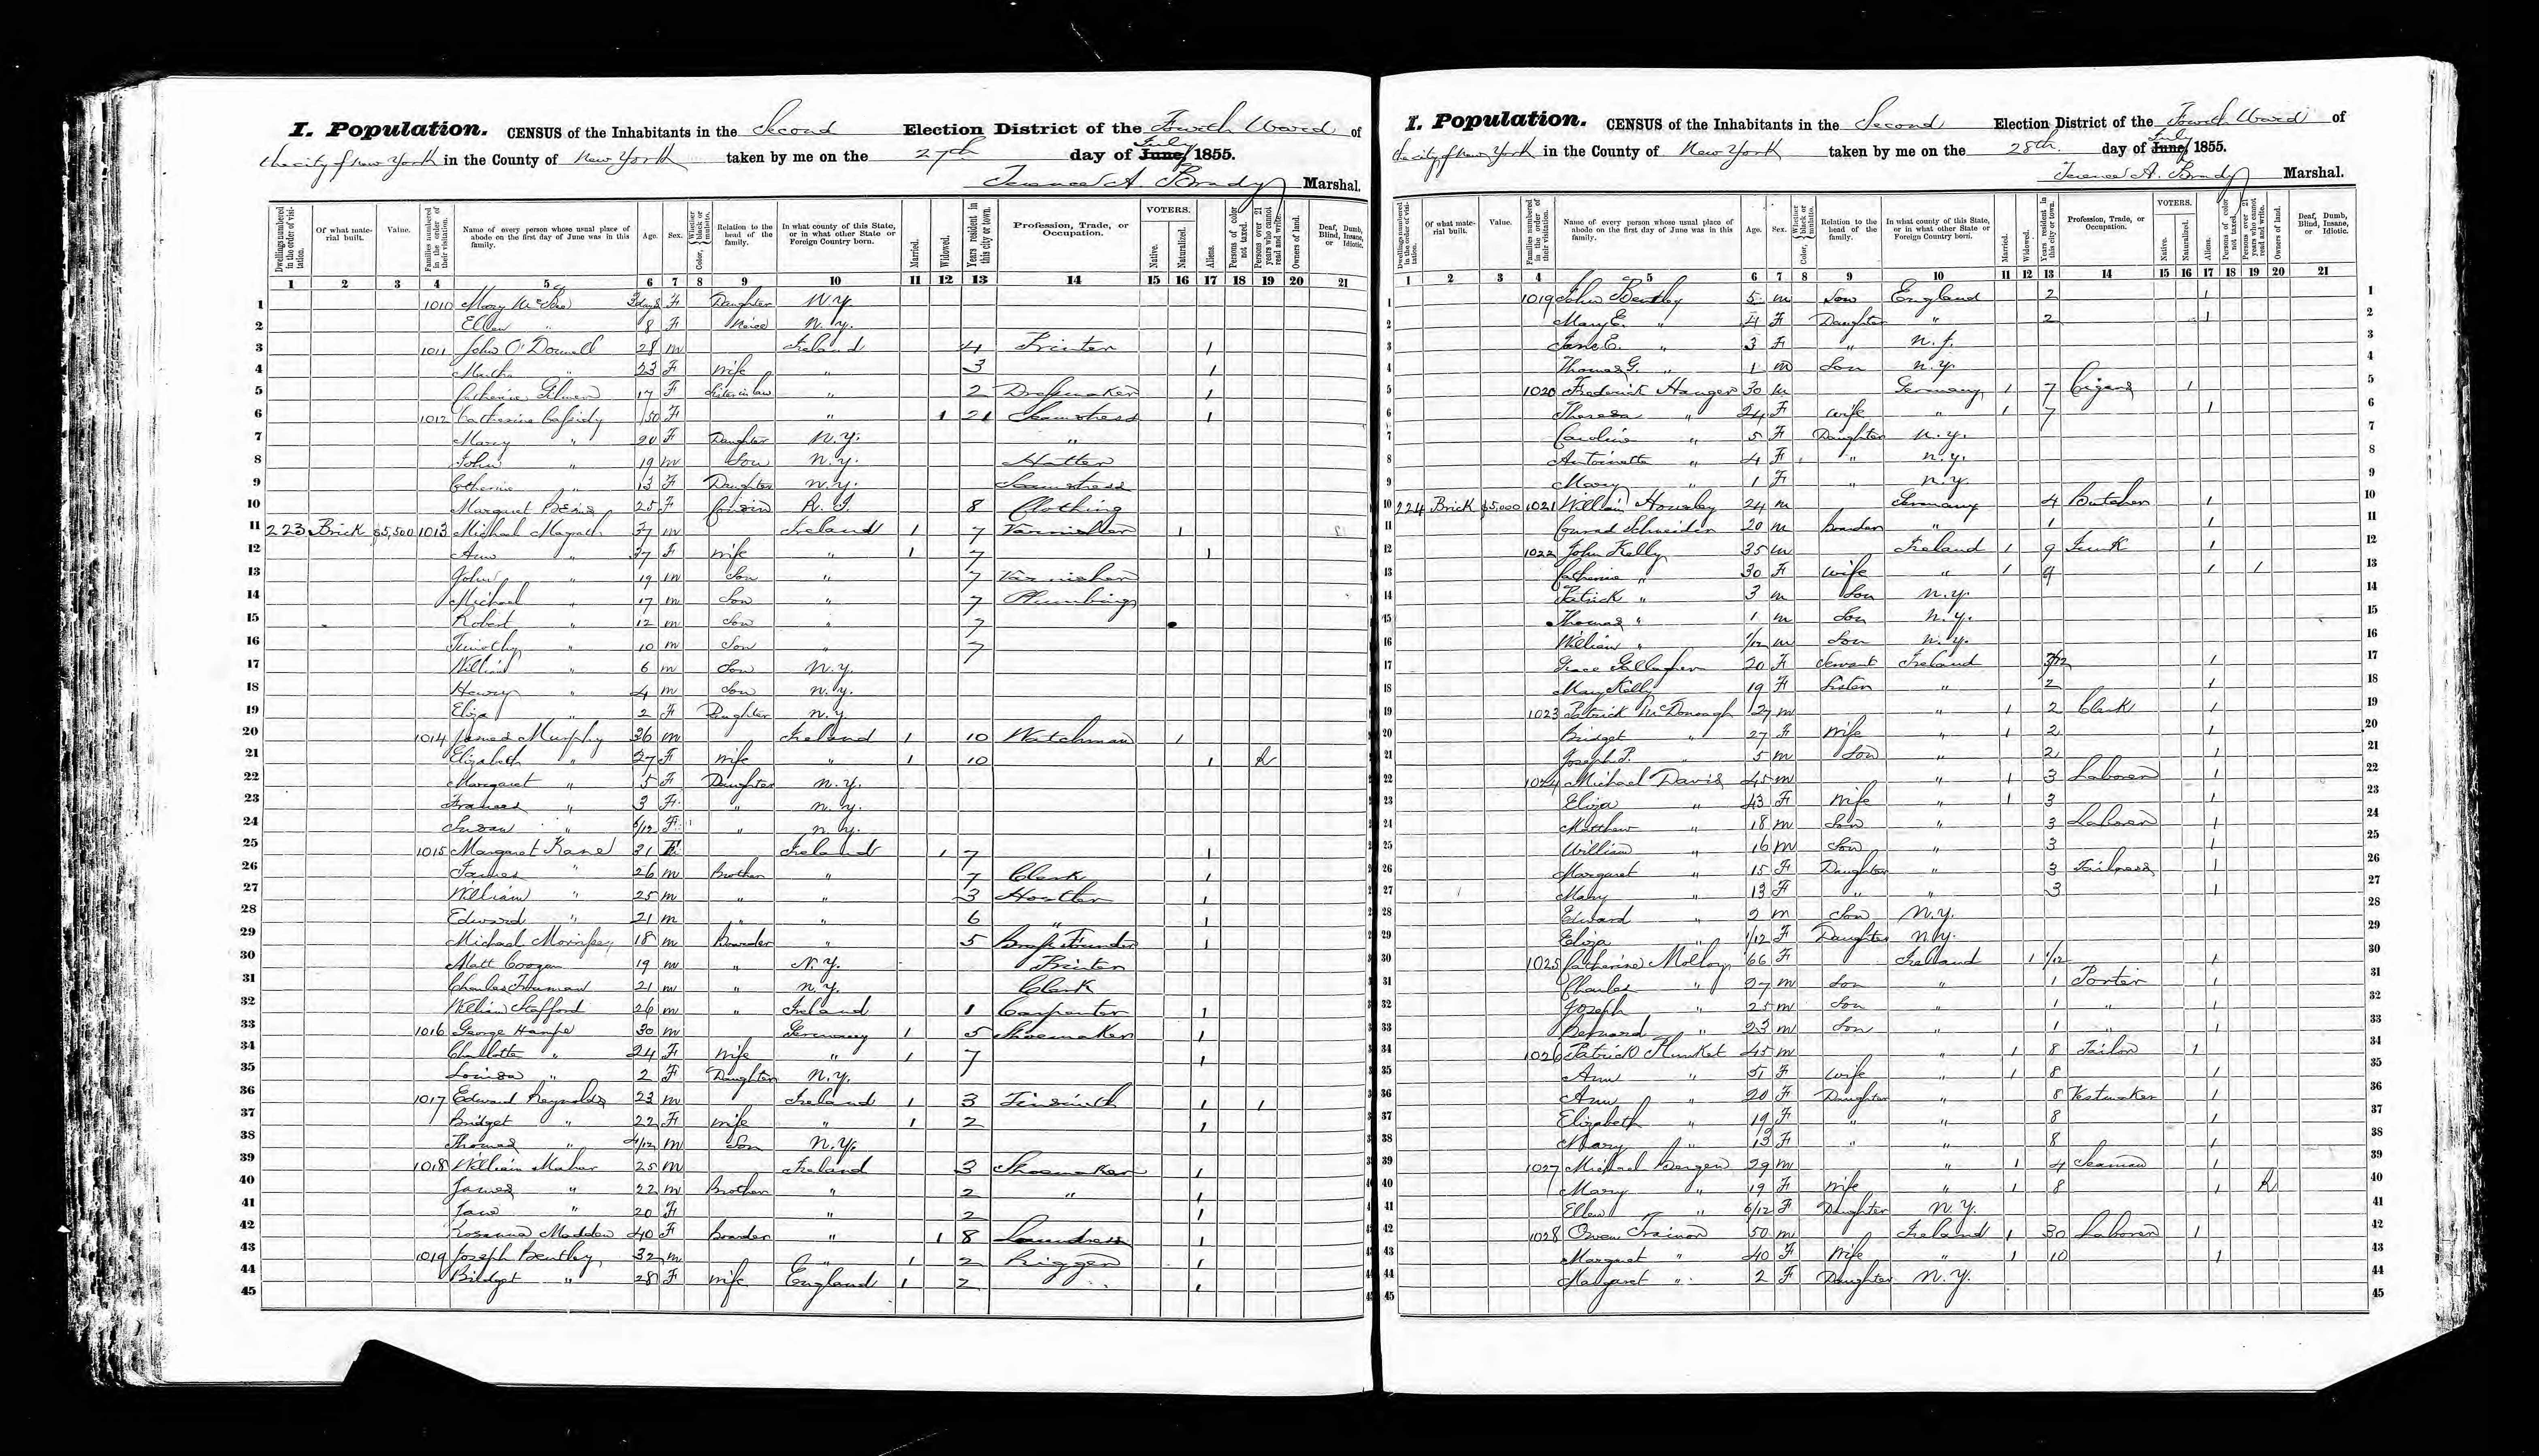 I. Population. CENSUS of the Inhabitants in the Second Election District of the Fourth Ward of
the city of New York in the County of New York taken by me on the 27th day of June, July 1855.
Terence A. Brady Marshal.
Dwellings numbered in the order of visitation. Of what material built. Value. Families numbered in the order of their visitation. Name of every person whose usual place of abode on the first day of June was in this family. Age. Sex. Color, Whether black or mulatto. Relation to the head of the family. In what county of this State, or in what other State or Foreign Country born. Married. Widowed. Years resident in this city or town. Profession, Trade, or Occupation. VOTERS. Native. Naturalized. Aliens. Persons of color not taxed. Persons over 21 years who cannot read and write. Owners of land. Deaf, Dumb, Blind, Insane, or Idiotic.
1 2 3 4 5 6 7 8 9 10 11 12 13 14 15 16 17 18 19 20 21
1 1010 Mary 3 days F Daughter N.Y.
2 Ellen " 8 F Neice N.Y.
3 1011 John O'Donnell 28 m Ireland 4 Printer 1
4 Martha " 23 F Wife " 3 1
5 Catherine 17 F Sister in law " 2 Dressmaker 1
6 1012 Catherine Cassidy 50 F " 1 21 Seamstress 1
7 Mary " 20 F Daughter N.Y. "
8 John " 19 m Son N.Y. Hatter
9 Catherine " 13 F Daughter N.Y. Seamstress
10 Margaret 25 F Cousin R.I. 8 Clothing
11 223 Brick $5,500 1013 Michael Magrath 37 m Ireland 1 7 Varnisher 1
12 Ann " 37 F Wife " 1 7 1
13 John " 19 m Son " 7 Varnisher
14 Michael " 17 m Son " 7 Plumbing
15 Robert " 12 m Son " 7
16 Timothy " 10 m Son " 7
17 William " 6 m Son N.Y.
18 Henry " 4 m Son N.Y.
19 Eliza " 2 F Daughter N.Y.
20 1014 James Murphy 36 m Ireland 1 10 Watchman 1
21 Elizabeth " 27 F Wife " 1 10 1 R
22 Margaret " 5 F Daughter N.Y.
23 Frances " 3 F " N.Y.
24 Susan " 6/12 F " N.Y.
25 1015 Margaret Kane 31 F Ireland 1 7 1
26 James " 26 m Brother " 7 Clerk 1
27 William " 25 m " " 3 Hostler 1
28 Edward " 21 m " " 6 " 1
29 Michael 18 m Boarder " 5 Brass Founder 1
30 Matt Coogan 19 m " N.Y. Printer
31 Charles 21 m " N.Y. Clerk
32 William Stafford 26 m " Ireland 1 Carpenter 1
33 1016 George Hampe 30 m Germany 1 5 Shoemaker 1
34 Charlotte " 24 F Wife " 1 7 1
35 Louisa " 2 F Daughter N.Y.
36 1017 Edward Reynolds 23 m Ireland 1 3 Tinsmith 1 1
37 Bridget " 22 F Wife " 1 2 1
38 Thomas " 4/12 m Son N.Y.
39 1018 William Mahar 25 m Ireland 3 Shoemaker 1
40 James " 22 m Brother " 2 " 1
41 Jane " 20 F " 2 1
42 Rosanna Madden 40 F Boarder " 1 8 Laundress 1
43 1019 Joseph Bentley 32 m " 1 2 Rigger 1
44 Bridget " 28 F Wife England 1 2 1
45
I. Population. CENSUS of the Inhabitants in the Second Election District of the Fourth Ward of
the city of New York in the County of New York taken by me on the 28th. day of June, July 1855.
Terence A. Brady Marshal.
Dwellings numbered in the order of visitation. Of what material built. Value. Families numbered in the order of their visitation. Name of every person whose usual place of abode on the first day of June was in this family. Age. Sex. Color, Whether black or mulatto. Relation to the head of the family. In what county of this State, or in what other State or Foreign Country born. Married. Widowed. Years resident in this city or town. Profession, Trade, or Occupation. VOTERS. Native. Naturalized. Aliens. Persons of color not taxed. Persons over 21 years who cannot read and write. Owners of land. Deaf, Dumb, Blind, Insane, or Idiotic.
1 2 3 4 5 6 7 8 9 10 11 12 13 14 15 16 17 18 19 20 21
1 1019 John Bentley 5 m Son England 2 1 1
2 Mary E. " 4 F Daughter " 2 1 2
3 Jane E. " 3 F " N.J. 3
4 Thomas G. " 1 m Son N.Y. 4
5 1020 Frederick Hanger 30 m Germany 1 7 Cigars 1 5
6 Theresa " 24 F Wife " 1 7 1 6
7 Caroline " 5 F Daughter N.Y. 7
8 Antoinette " 4 F " N.Y. 8
9 Mary " 1 F " N.Y. 9
10 224 Brick $5,000 1021 William Housley 24 m Germany 4 Butcher 1 10
11 Conrad Schneider 20 m Boarder " 1 1 11
12 1022 John Kelly 35 m Ireland 1 9 Junk 1 12
13 Catherine " 30 F Wife " 1 9 1 1 13
14 Patrick " 3 m Son N.Y. 14
15 Thomas " 1 m Son N.Y. 15
16 William " 1/12 m Son N.Y. 16
17 Grace Gallagher 20 F Servant Ireland 3/12 1 17
18 Mary Kelly 19 F Sister " 2 1 18
19 1023 Patrick McDonough 27 m " 1 2 Clerk 1 19
20 Bridget " 27 F Wife " 1 2 1 20
21 Joseph P. " 5 m Son " 2 1 21
22 1024 Michael Davis 45 m " 1 3 Laborer 1 22
23 Eliza " 43 F Wife " 1 3 1 23
24 Matthew " 18 m Son " 3 Laborer 1 24
25 William " 16 m Son " 3 1 25
26 Margaret " 15 F Daughter " 3 Tailoress 1 26
27 Mary " 13 F " " 3 1 27
28 Edward " 2 m Son N.Y. 28
29 Eliza " 1/12 F Daughter N.Y. 29
30 1025 Catherine Molloy 66 F Ireland 1 1/12 1 30
31 Charles " 27 m Son " 1 Porter 1 31
32 Joseph " 25 m Son " 1 " 1 32
33 Bernard " 23 m Son " 1 " 1 33
34 1026 Patrick Plunket 45 m " 1 8 Tailor 1 34
35 Ann " 51 F Wife " 1 8 1 35
36 Ann " 20 F Daughter " 8 Vestmaker 1 36
37 Elizabeth " 19 F " " 8 1 37
38 Mary " 13 F " " 8 1 38
39 1027 Michael Bergen 29 m " 1 4 Seaman 1 39
40 Mary " 19 F Wife " 1 8 1 R 40
41 Ellen " 6/12 F Daughter N.Y. 41
42 1028 Owen Trainor 50 m Ireland 1 30 Laborer 1 42
43 Margaret " 40 F Wife " 1 10 1 43
44 Margaret " 2 F Daughter N.Y. 44
45 45